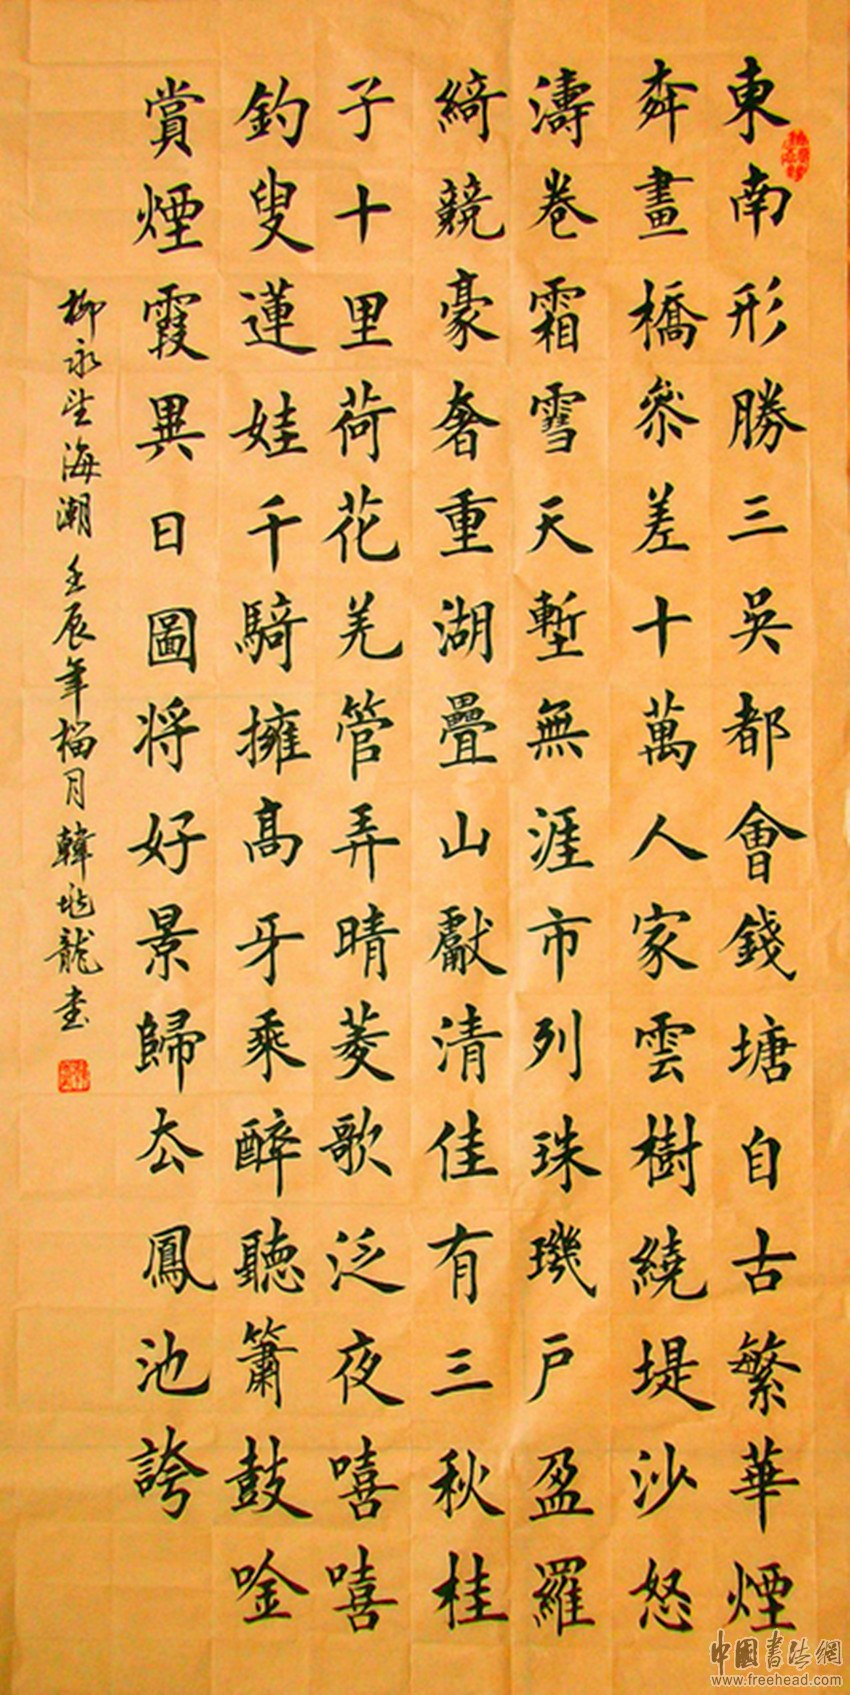 東南形勝三吳都會錢塘自古繁華煙
奔畫橋參差十萬人家雲樹繞堤沙怒
濤卷霜雪天塹無涯市列珠璣戶盈羅
綺競豪奢重湖疊山獻清佳有三秋桂
子十里荷花羌管弄晴菱歌泛夜嘻嘻
釣叟蓮娃千騎擁高牙乘醉聽簫鼓唫
賞煙霞異日圖將好景歸去鳳池誇
柳永望海潮 壬辰年榴月韓龍書
中國書法網
www.freehead.com